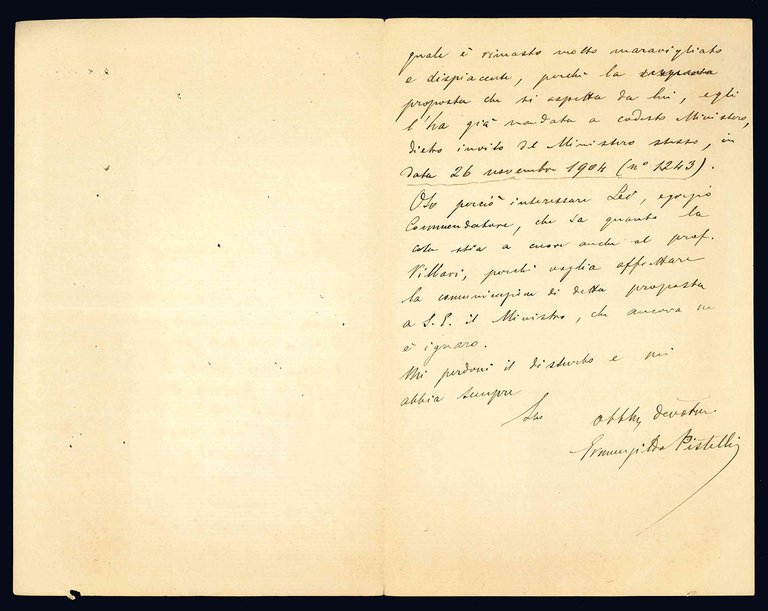 quale è rimasto molto maravigliato
e dispiacente, perchè la risposta
proposta che si aspetta da lui, egli
l'ha già mandata a codesto Ministero,
dietro invito del Ministero stesso, in
data 26 novembre 1904 (n° 1243).
Oso perciò interessare Lei, egregio
Commendatore, che sa quanto la
cosa stia a cuore anche al prof.
Villari, perchè voglia affrettare
la comunicazione di detta proposta
a S. E. il Ministro, che ancora ne
è ignaro.
Mi perdoni il disturbo e mi
abbia sempre
Suo obbmo devotmo
Ermenegildo Pistelli